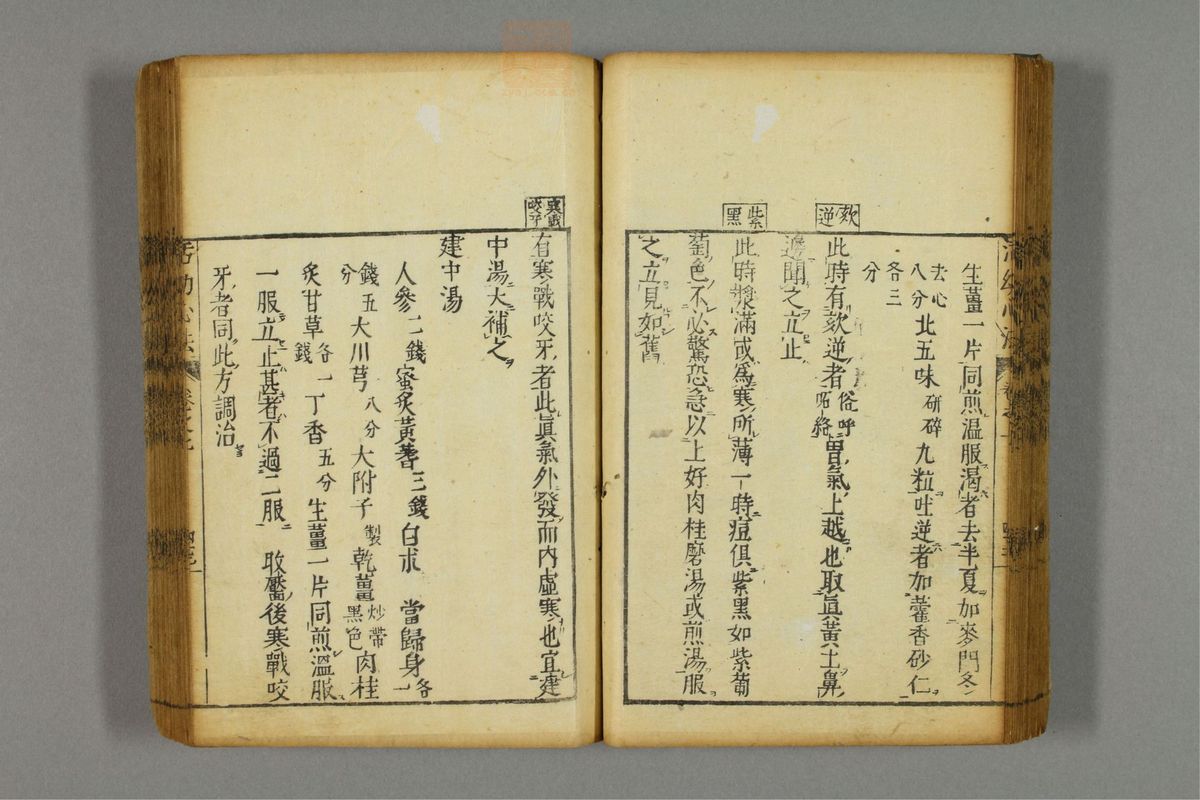 生薑一片同煎温服渴者去半夏加麥門冬
去心八分北五味研碎九粒吐逆者加藿香砂仁
各三分
欬逆
此時有欬逆者俗呼呃絡胃氣上越也取眞黃土鼻
邊聞之立止
紫黑
此時漿滿或爲寒所薄一時痘俱紫黑如紫葡
萄色不必驚恐急以上好肉桂磨湯或煎湯服
之立見如舊
寒戰咬牙
有寒戰咬牙者此眞氣外發而内虛寒也宜建
中湯大補之
建中湯
人參二錢蜜炙黃蓍三錢白朮 當歸身各一
錢五分大川芎八分大附子製乾薑炒帶黑色肉桂
炙甘草各一錢丁香五分生薑一片同煎溫服
一服立止甚者不過二服 收靨後寒戰咬
牙者同此方調治
活幼心法